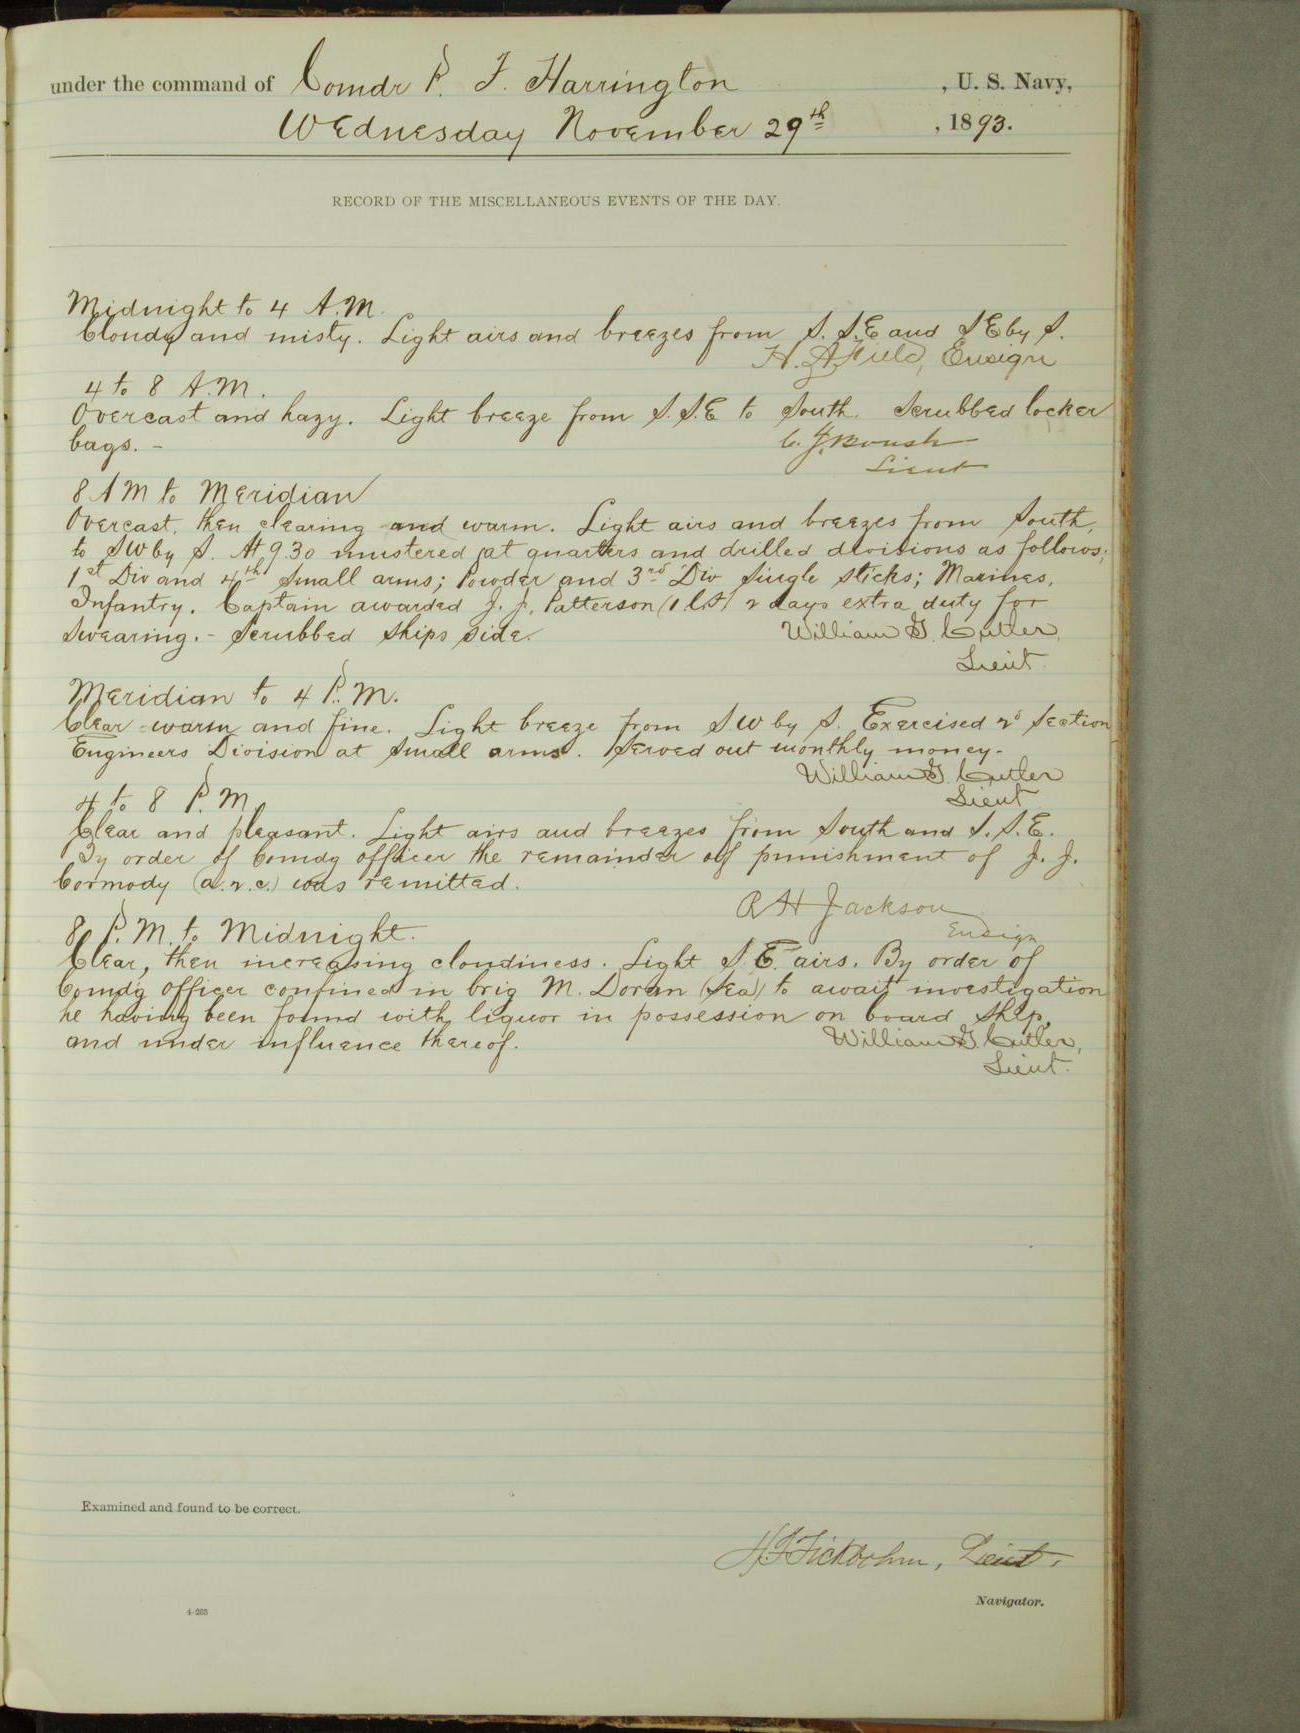 under the command of Comdr P. F. Harrington , U. S. Navy,
Wednesday November 29th , 1893.
RECORD OF THE MISCELLANEOUS EVENTS OF THE DAY.
Midnight to 4 A.M.
Cloudy and misty. Light airs and breezes from S. S.E and SE by S.
H. A. Field, Ensign
4 to 8 A.M.
Overcast and hazy. Light breeze from S.S.E to South. Scrubbed locker
bags. -
C. J. Boush
Lieut
8 AM to Meridian
Overcast, then clearing and warm. Light airs and breezes from South,
to SW by S. At 9.30 mustered at quarters and drilled divisions as follows;
1st Div and 4th Small arms; Powder and 3rd Div Single Sticks; Marines,
Infantry. Captain awarded J. J. Patterson 2 days extra duty for
Swearing. - Scrubbed ships side.
William G. Cutler,
Lieut.
Meridian to 4 P.M.
Clear - warm and fine. Light breeze from SW by S. Exercised 2d Section
Engineers Division at Small arms. Served out monthly money -
William G. Cutler
Lieut
4 to 8 P.M.
Clear and pleasant. Light airs and breezes from South and S.S.E.
By order of Comdg officer the remainder of punishment of J. J.
Cormody (a.2.c.) was remitted.
R H Jackson
Ensign
8 P.M. to Midnight.
Clear, then increasing cloudiness. Light S.E. airs. By order of
Comdg Officer confined in brig M. Doran (Sea) to await investigation
he having been found with liquor in possession on board Ship,
and under influence thereof.
William G. Cutler,
Lieut.
Examined and found to be correct.
H F Fickbohm, Lieut,
Navigator.
4-265